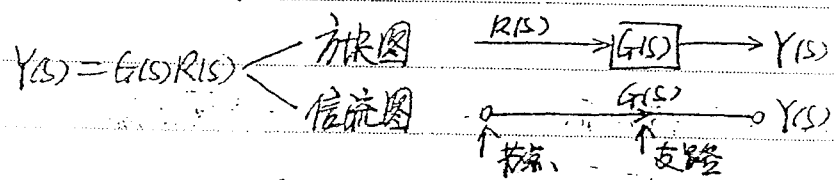 Y(s)=G(s)R(s)
方块图 R(s) G(s) Y(s)
信流图 G(s) Y(s)
节点、 支路